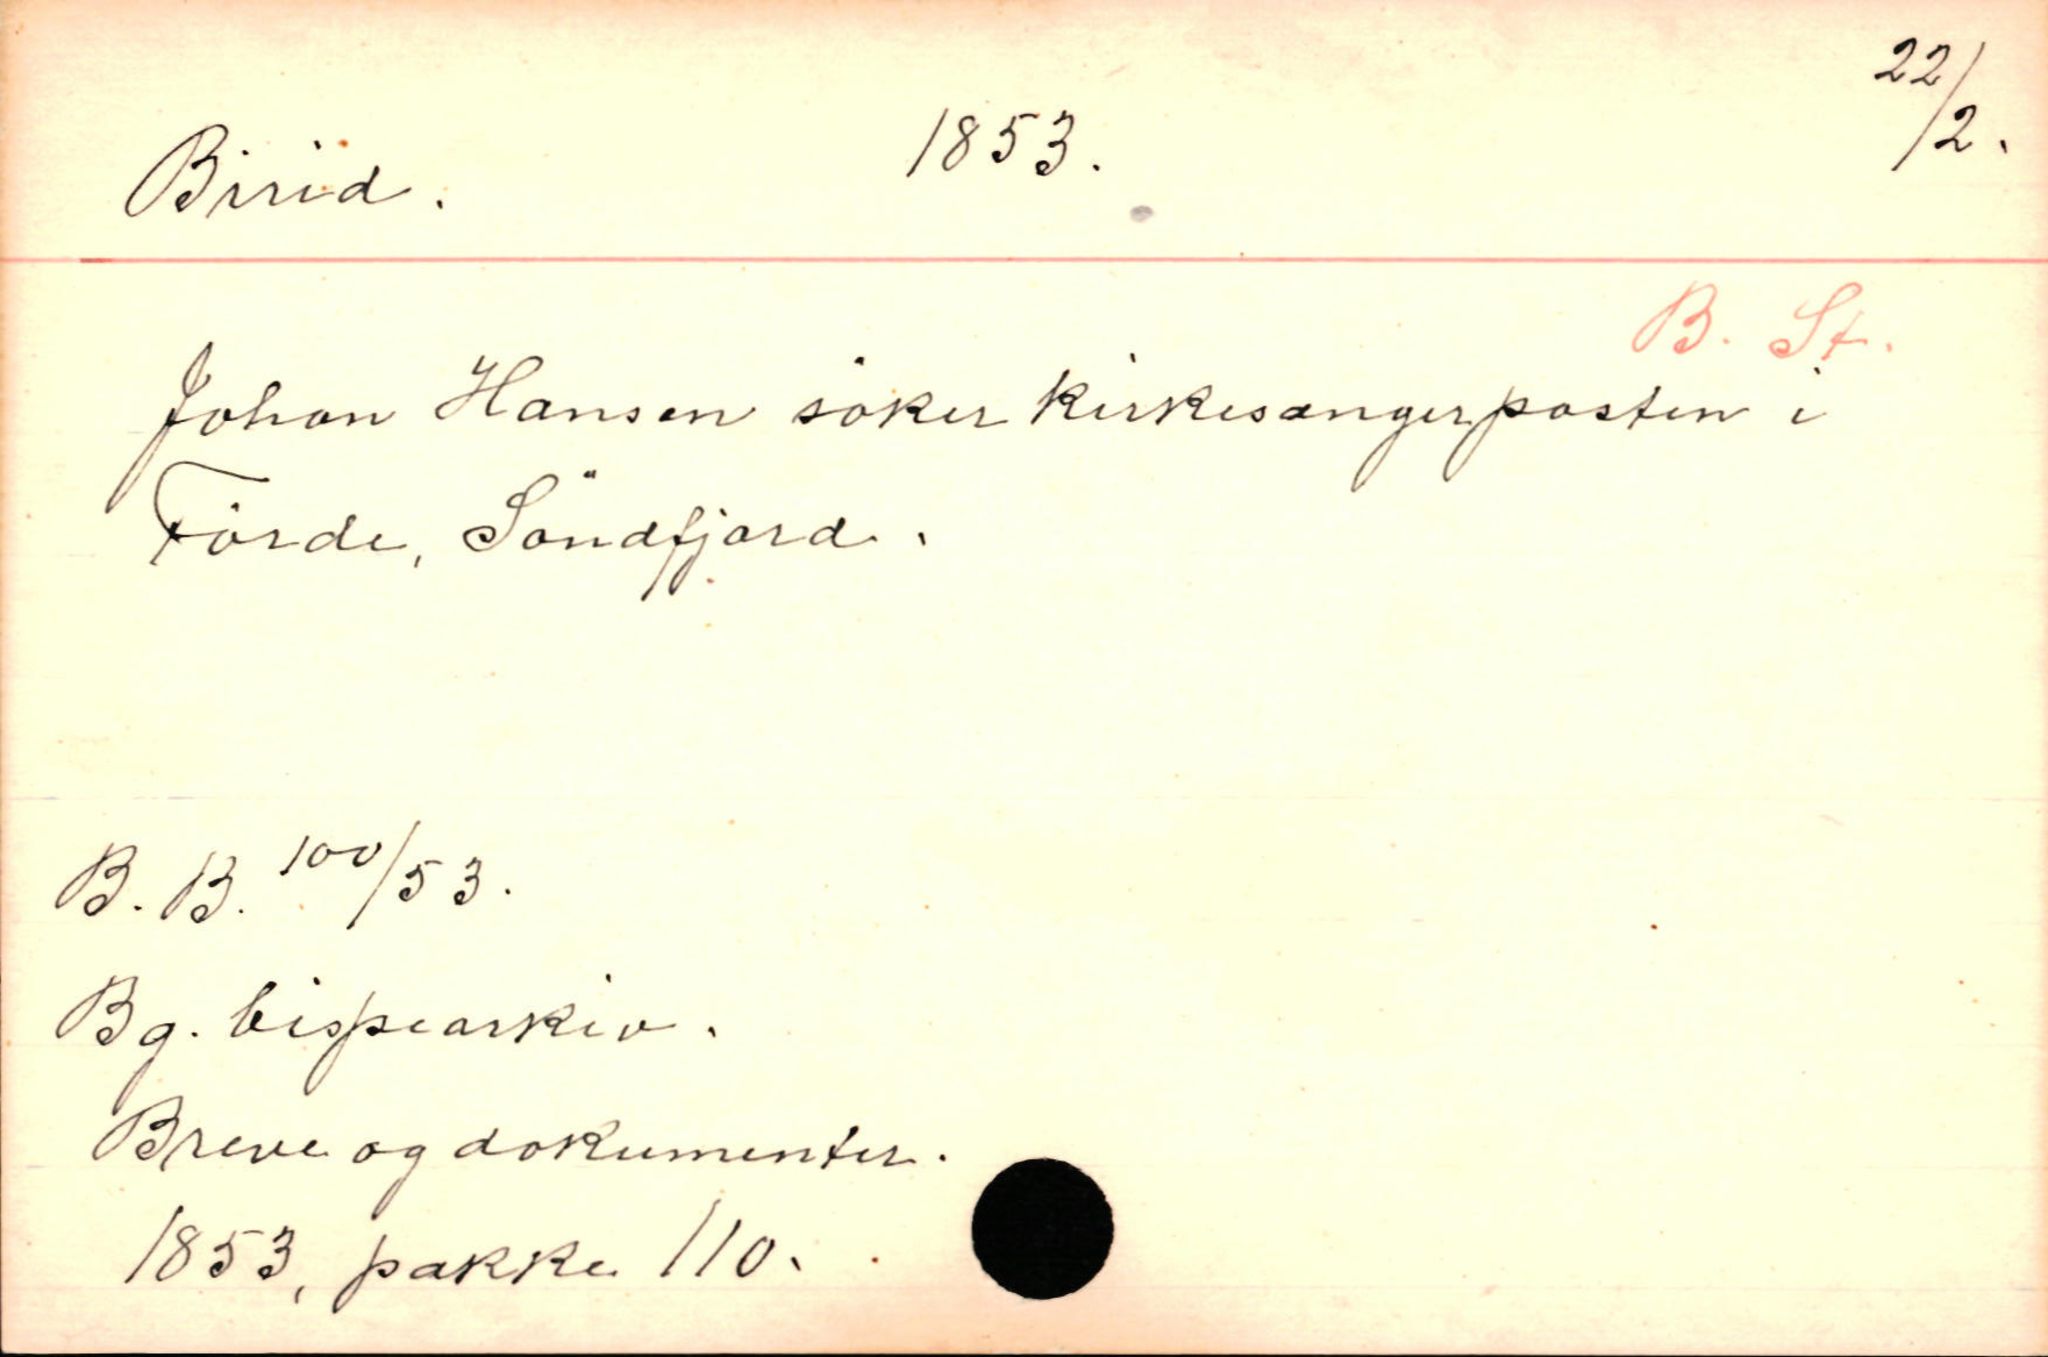 Birid. 1853. 22/2.
B. St.
Johan Hansen söker kirkesangerposten i
Förde, Söndfjord.
B. B. 100/53.
Bg. bispearkiv.
Breve og dokumenter.
1853, pakke 110.